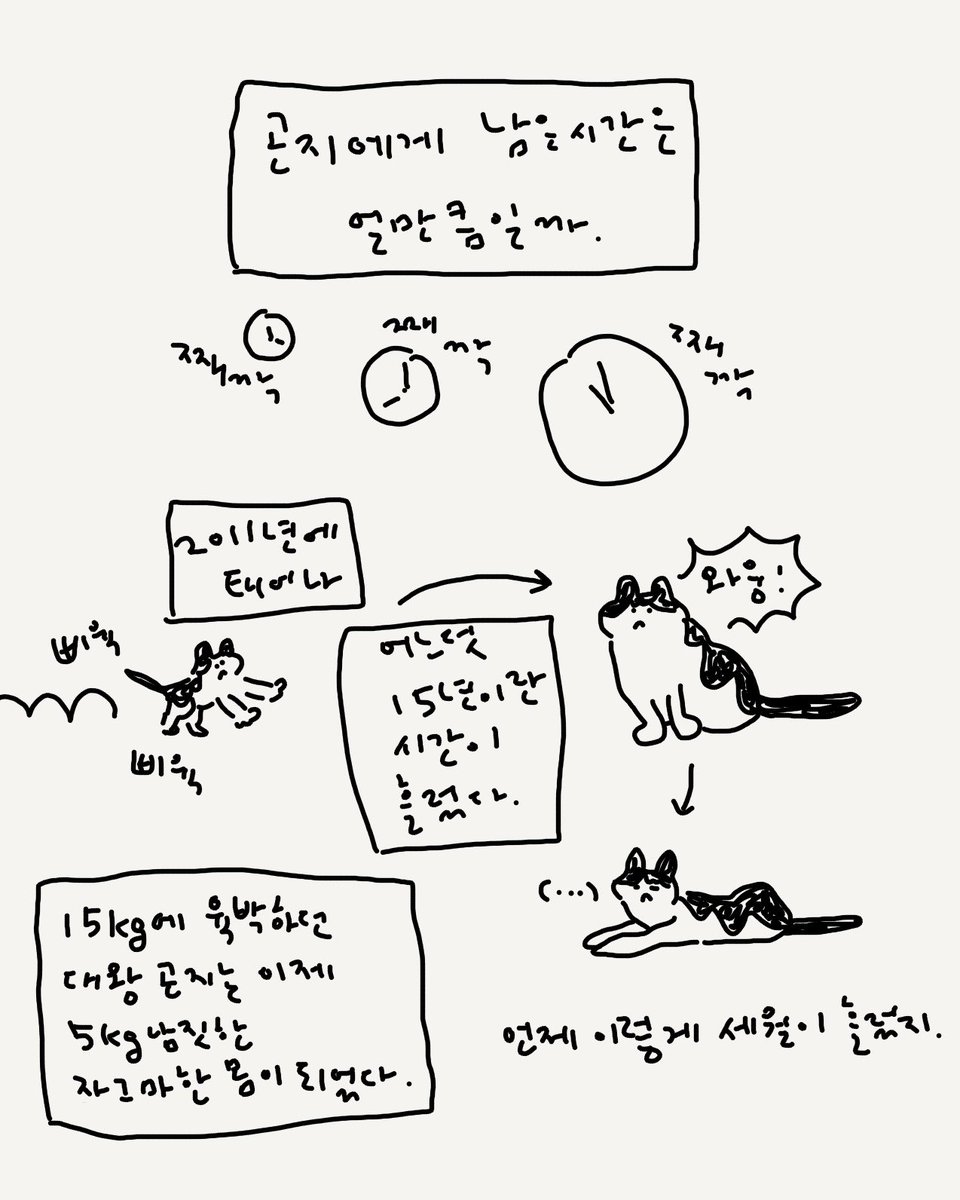 곤지에게 남은시간은
얼만큼일까.
째깍
째
깍
째
깍
2011년에
태어나
삐웍
삐웍
어느덧
15년이란
시간이
흘렀다.
와웅!
(...)
15kg에 육박하던
대왕 곤지는 이제
5kg남짓한
자그마한 몸이 되었다.
언제 이렇게 세월이 흘렀지.